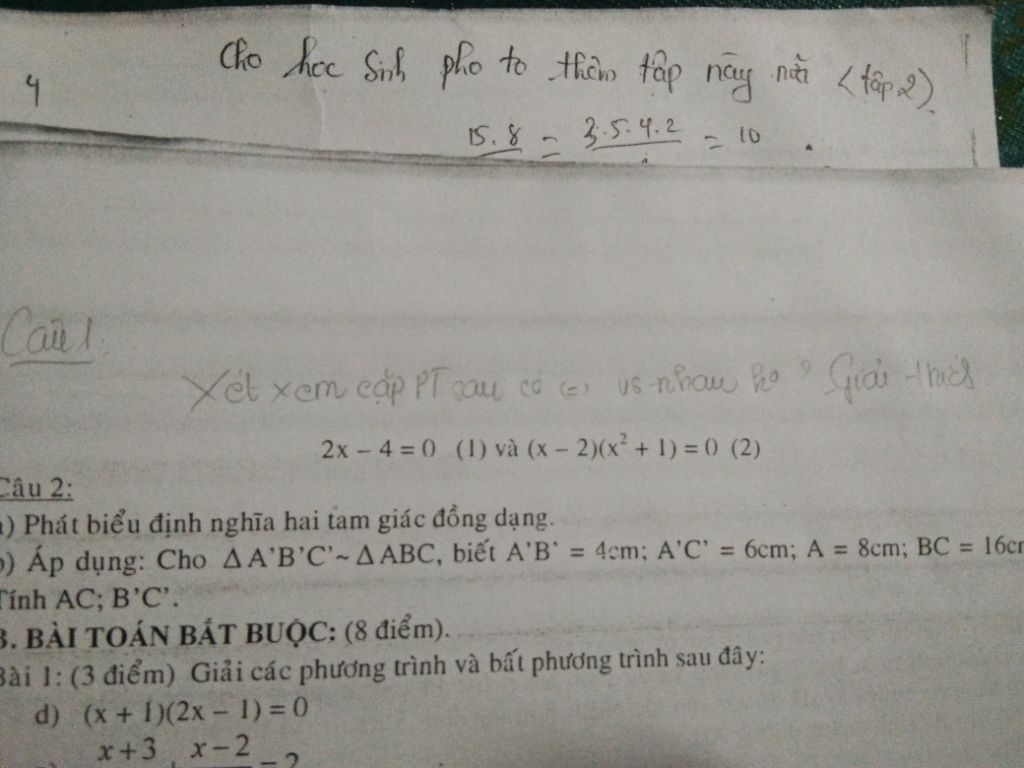 Cho học sinh pho to thêm tập này nữa (tập 2)
4
15.8 = 3.5.4.2 = 10
Câu 1.
Xét xem cặp PT sau có (=) vs nhau ko? Giải thích
2x – 4 = 0 (1) và (x – 2)(x² + 1) = 0 (2)
Câu 2:
a) Phát biểu định nghĩa hai tam giác đồng dạng.
b) Áp dụng: Cho Δ A'B'C' ~ Δ ABC, biết A'B' = 4cm; A'C' = 6cm; A = 8cm; BC = 16cm
Tính AC; B'C'.
B. BÀI TOÁN BẮT BUỘC: (8 điểm).
Bài 1: (3 điểm) Giải các phương trình và bất phương trình sau đây:
d) (x + 1)(2x – 1) = 0
x + 3 + x – 2 = 2